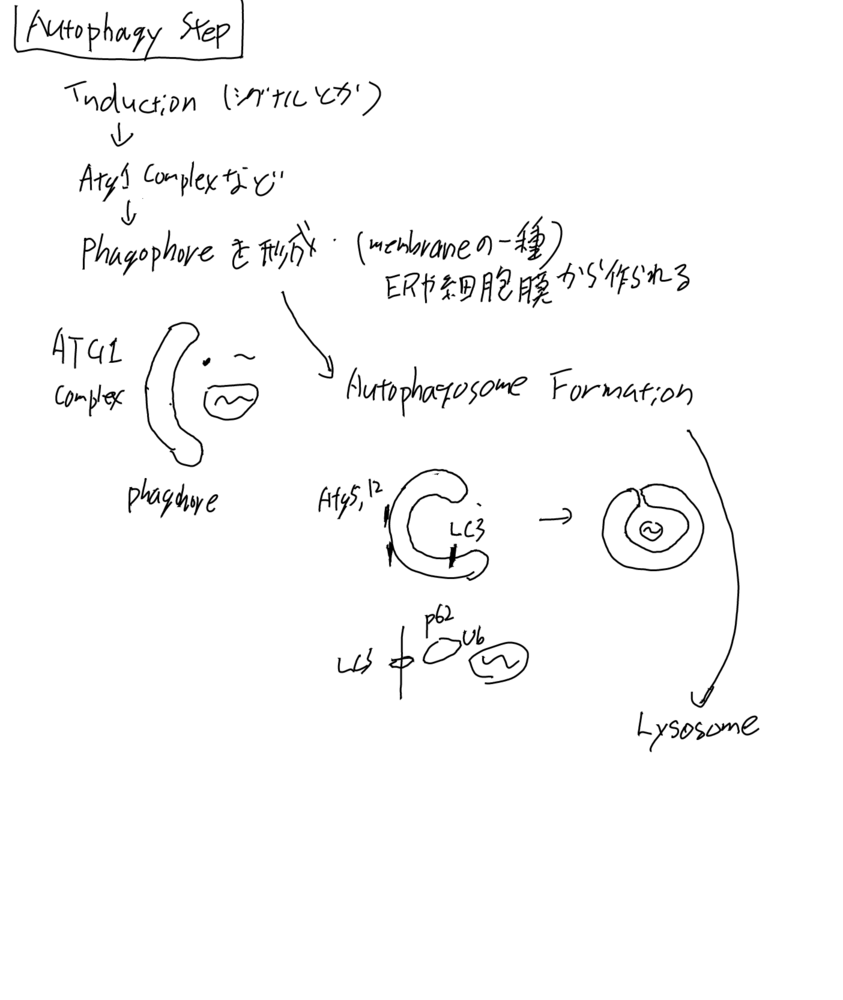 Autophagy Step
Induction (シグナルとか)
↓
Atg1 Complexなど
↓
Phagophore を形成・(menbraneの一種)
ERや細胞膜から作られる
ATG1
Complex
phaghore
Autophagosome Formation
Atg5,12
LC3
→
p62
Ub
LC3
Lysosome